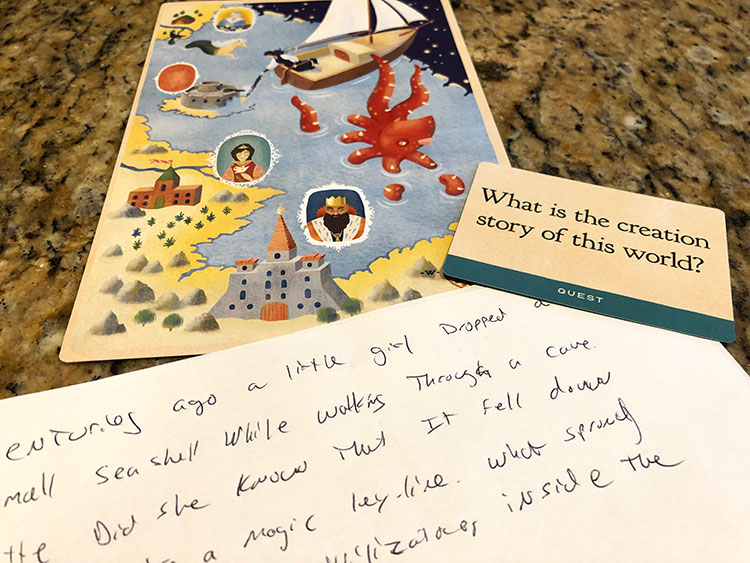 What is the creation
story of this world?
QUEST
enturies ago a little girl Dropped a
mall Seashell While walking Through a cave.
ttle Did she Known That It Fell down
a Magic ley-line. What sprung
inside the